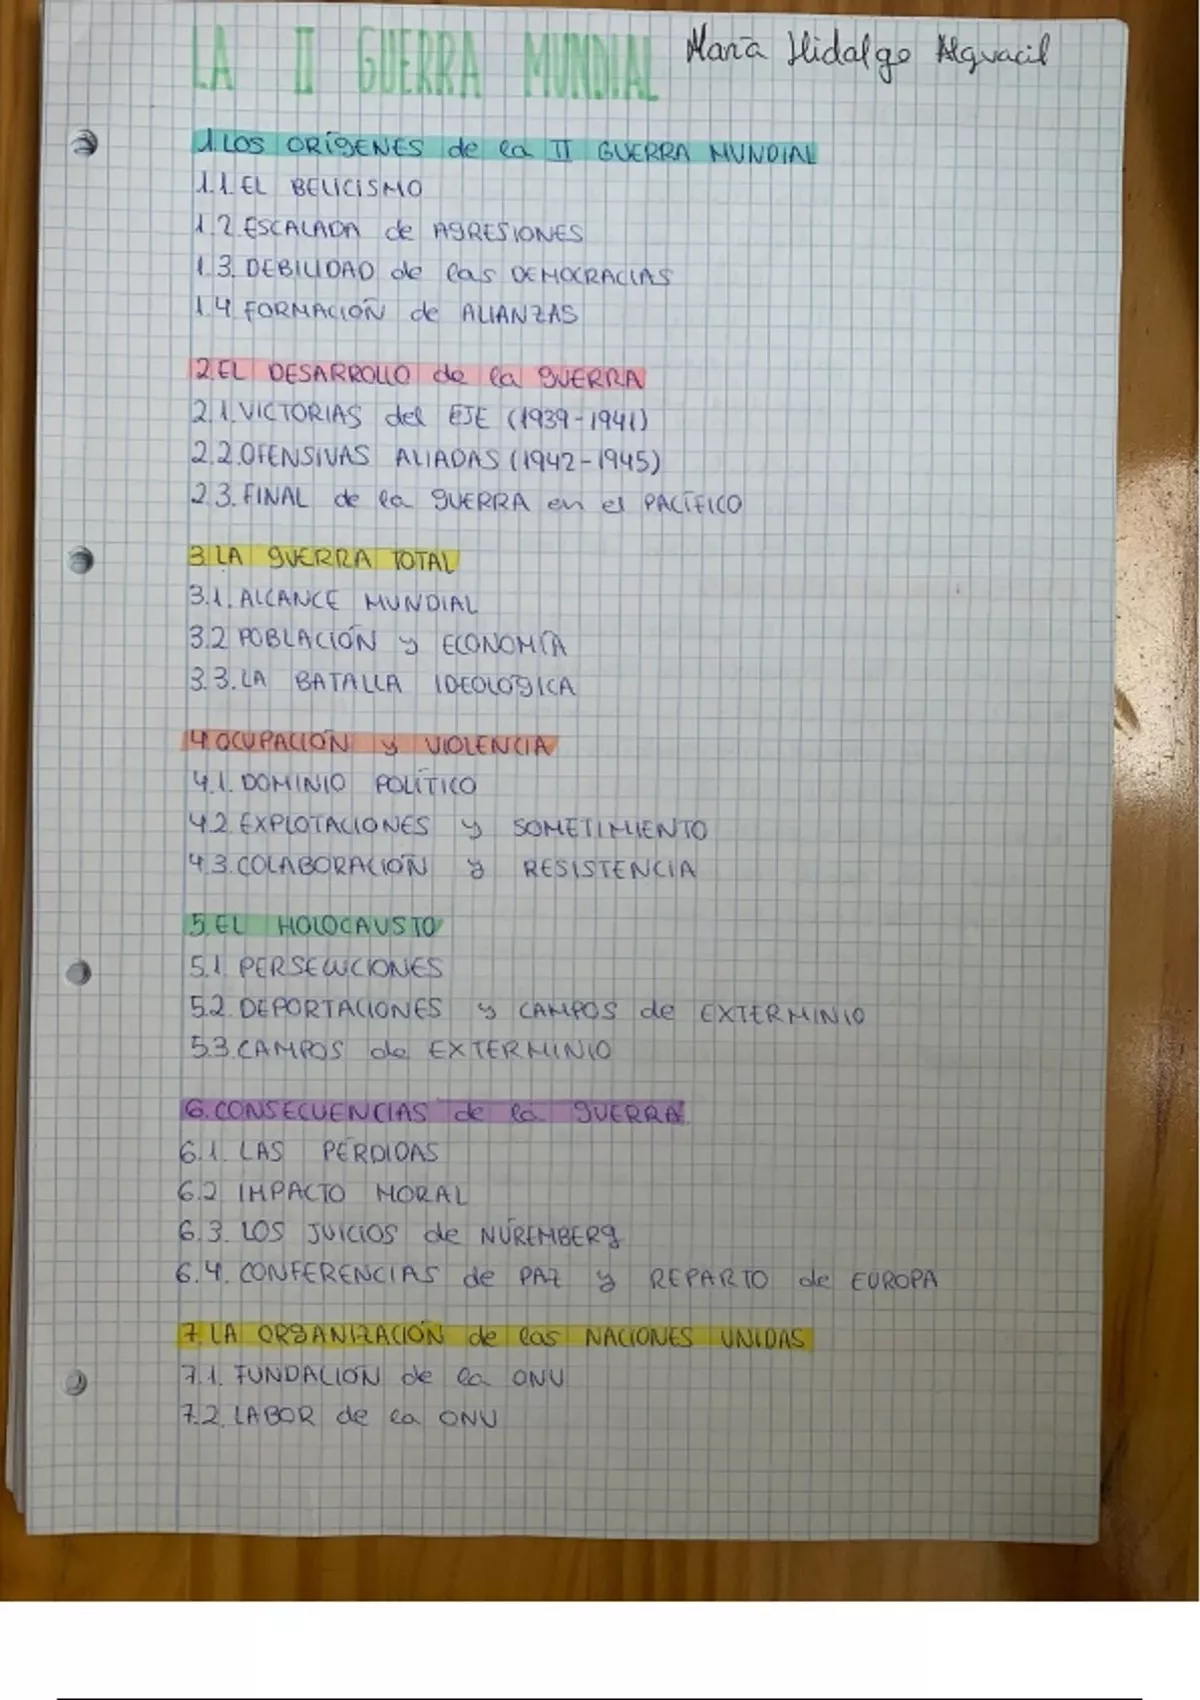 LA II GUERRA MUNDIAL María Hidalgo Alguacil
1. LOS ORÍGENES de la II GUERRA MUNDIAL
1.1. EL BELICISMO
1.2. ESCALADA de AGRESIONES
1.3. DEBILIDAD de las DEMOCRACIAS
1.4. FORMACIÓN de ALIANZAS
2. EL DESARROLLO de la GUERRA
2.1. VICTORIAS del EJE (1939-1941)
2.2. OFENSIVAS ALIADAS (1942-1945)
2.3. FINAL de la GUERRA en el PACÍFICO
3. LA GUERRA TOTAL
3.1. ALCANCE MUNDIAL
3.2 POBLACIÓN y ECONOMÍA
3.3. LA BATALLA IDEOLÓGICA
4. OCUPACIÓN y VIOLENCIA
4.1. DOMINIO POLÍTICO
4.2. EXPLOTACIONES y SOMETIMIENTO
4.3. COLABORACIÓN y RESISTENCIA
5. EL HOLOCAUSTO
5.1. PERSECUCIONES
5.2. DEPORTACIONES y CAMPOS de EXTERMINIO
5.3. CAMPOS de EXTERMINIO
6. CONSECUENCIAS de la GUERRA
6.1. LAS PÉRDIDAS
6.2 IMPACTO MORAL
6.3. LOS JUICIOS de NÚREMBERG
6.4. CONFERENCIAS de PAZ y REPARTO de EUROPA
7. LA ORGANIZACIÓN de las NACIONES UNIDAS
7.1. FUNDACIÓN de la ONU
7.2. LABOR de la ONU